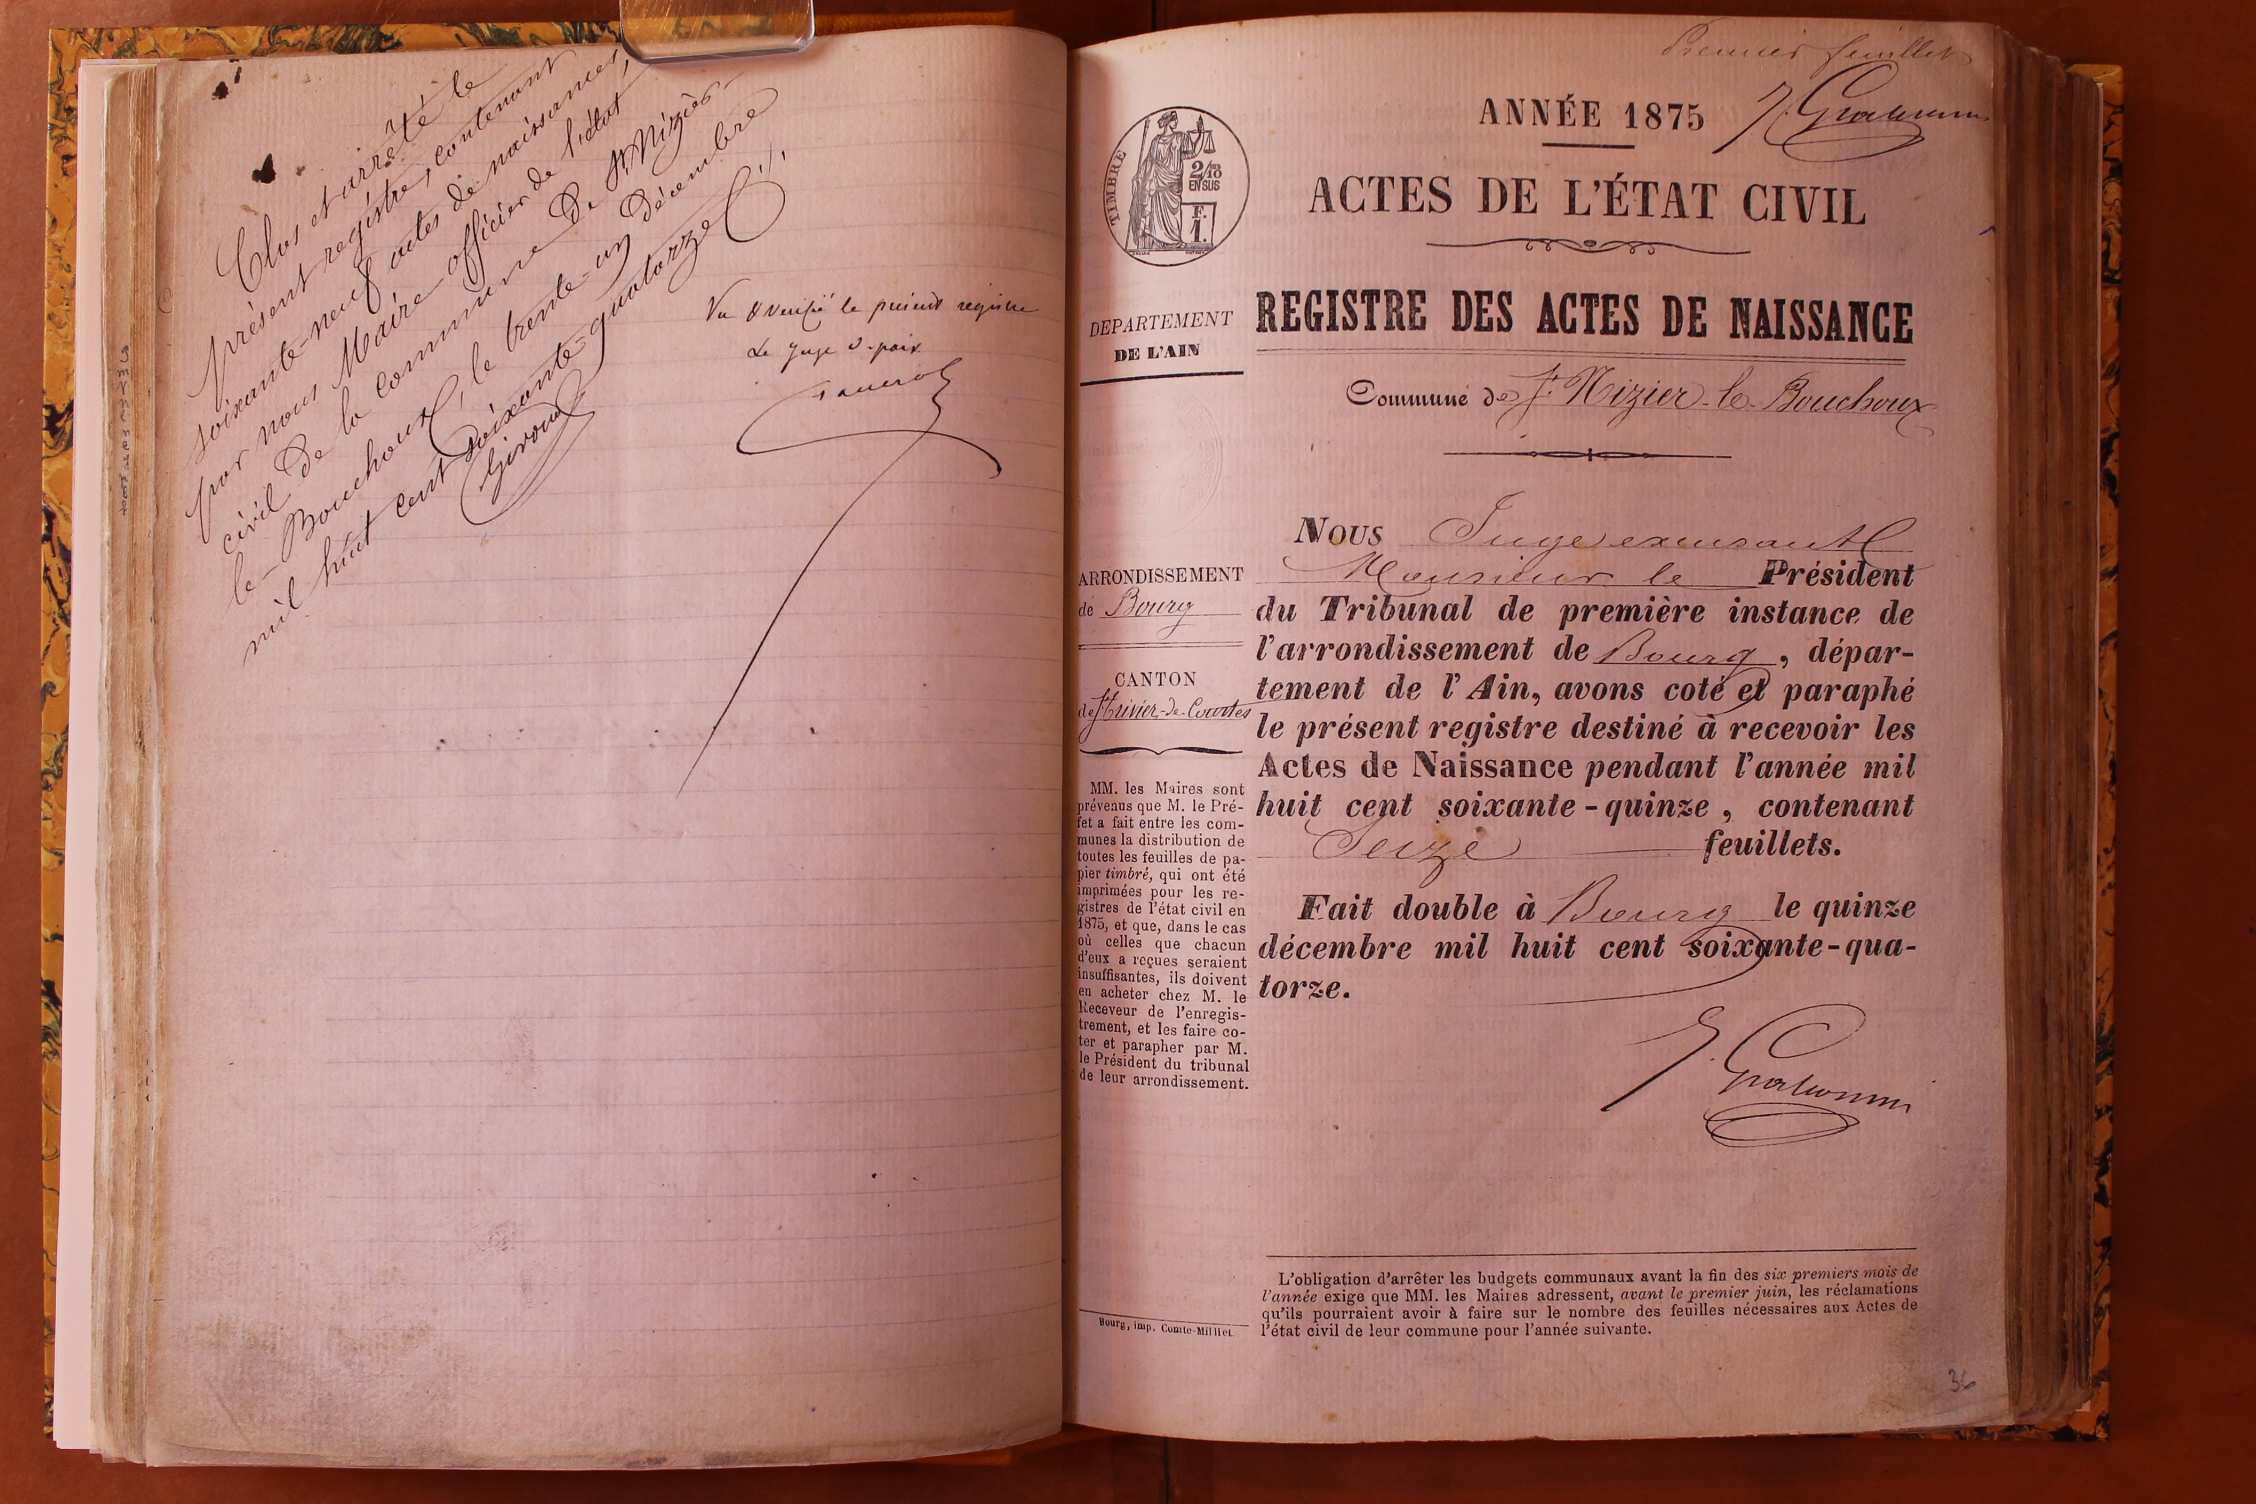 Clos et arrêté le
présent registre, contenant
soixante-neuf actes de naissances,
par nous Maire officier de l'état
civil de la commune de St Nizier-
le-Bouchoux, le trente-un décembre
mil huit cent soixante-quatorze
Giroud
Vu & vérifié le présent registre
Le juge d. paix
Premier feuillet
ANNÉE 1875
ACTES DE L'ÉTAT CIVIL
REGISTRE DES ACTES DE NAISSANCE
Commune de St Nizier-le-Bouchoux
TIMBRE
2/10
EN SUS
F.
1.
DEPARTEMENT
DE L'AIN
ARRONDISSEMENT
de Bourg
CANTON
de St Trivier-de-Courtes
MM. les Maires sont
prévenus que M. le Pré-
fet a fait entre les com-
munes la distribution de
toutes les feuilles de pa-
pier timbré, qui ont été
imprimées pour les re-
gistres de l'état civil en
1875, et que, dans le cas
où celles que chacun
d'eux a reçues seraient
insuffisantes, ils doivent
en acheter chez M. le
Receveur de l'enregis-
trement, et les faire co-
ter et parapher par M.
le Président du tribunal
de leur arrondissement.
Bourg, imp. Comte-Milliet
NOUS Juge
Monsieur le Président
du Tribunal de première instance de
l'arrondissement de Bourg, dépar-
tement de l'Ain, avons coté et paraphé
le présent registre destiné à recevoir les
Actes de Naissance pendant l'année mil
huit cent soixante-quinze, contenant
Seize feuillets.
Fait double à Bourg le quinze
décembre mil huit cent soixante-qua-
torze.
L'obligation d'arrêter les budgets communaux avant la fin des six premiers mois de
l'année exige que MM. les Maires adressent, avant le premier juin, les réclamations
qu'ils pourraient avoir à faire sur le nombre des feuilles nécessaires aux Actes de
l'état civil de leur commune pour l'année suivante.
36